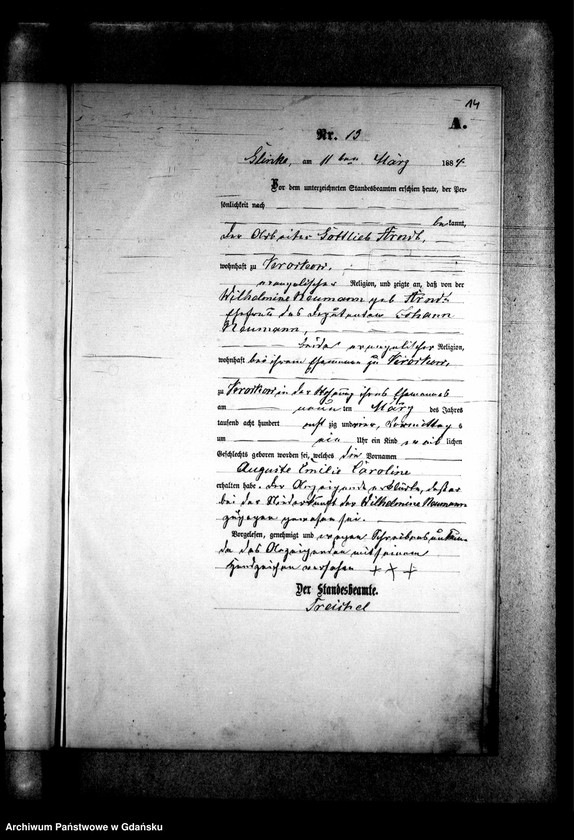 14
A.
Nr. 13
Glinke, am 11ten März 1884
Vor dem unterzeichneten Standesbeamten erschien heute, der Per-
sönlichkeit nach
bekannt,
der Arbeiter Gottlieb
wohnhaft zu
evangelischer Religion, und zeigte an, daß von der
Wilhelmine Neumann geb
Ehefrau des Deputanten Johann
Neumann,
beide evangelischer Religion,
wohnhaft bei ihrem Ehemanne zu
zu in der Wohnung ihres Ehemannes
am neunten März des Jahres
tausend acht hundert achtzig und vier, Vormittags
um ein Uhr ein Kind weiblichen
Geschlechts geboren worden sei, welches die Vornamen
Auguste Emilie Caroline
erhalten habe. Der Anzeigende erklärte, daß er
bei der Niederkunft der Wilhelmine Neumann
zugegen gewesen sei.
Vorgelesen, genehmigt und wegen Schreibensunkun-
de des Anzeigenden mit seinem
Handzeichen versehen + + +
Der Standesbeamte.
Treichel
Archiwum Państwowe w Gdańsku